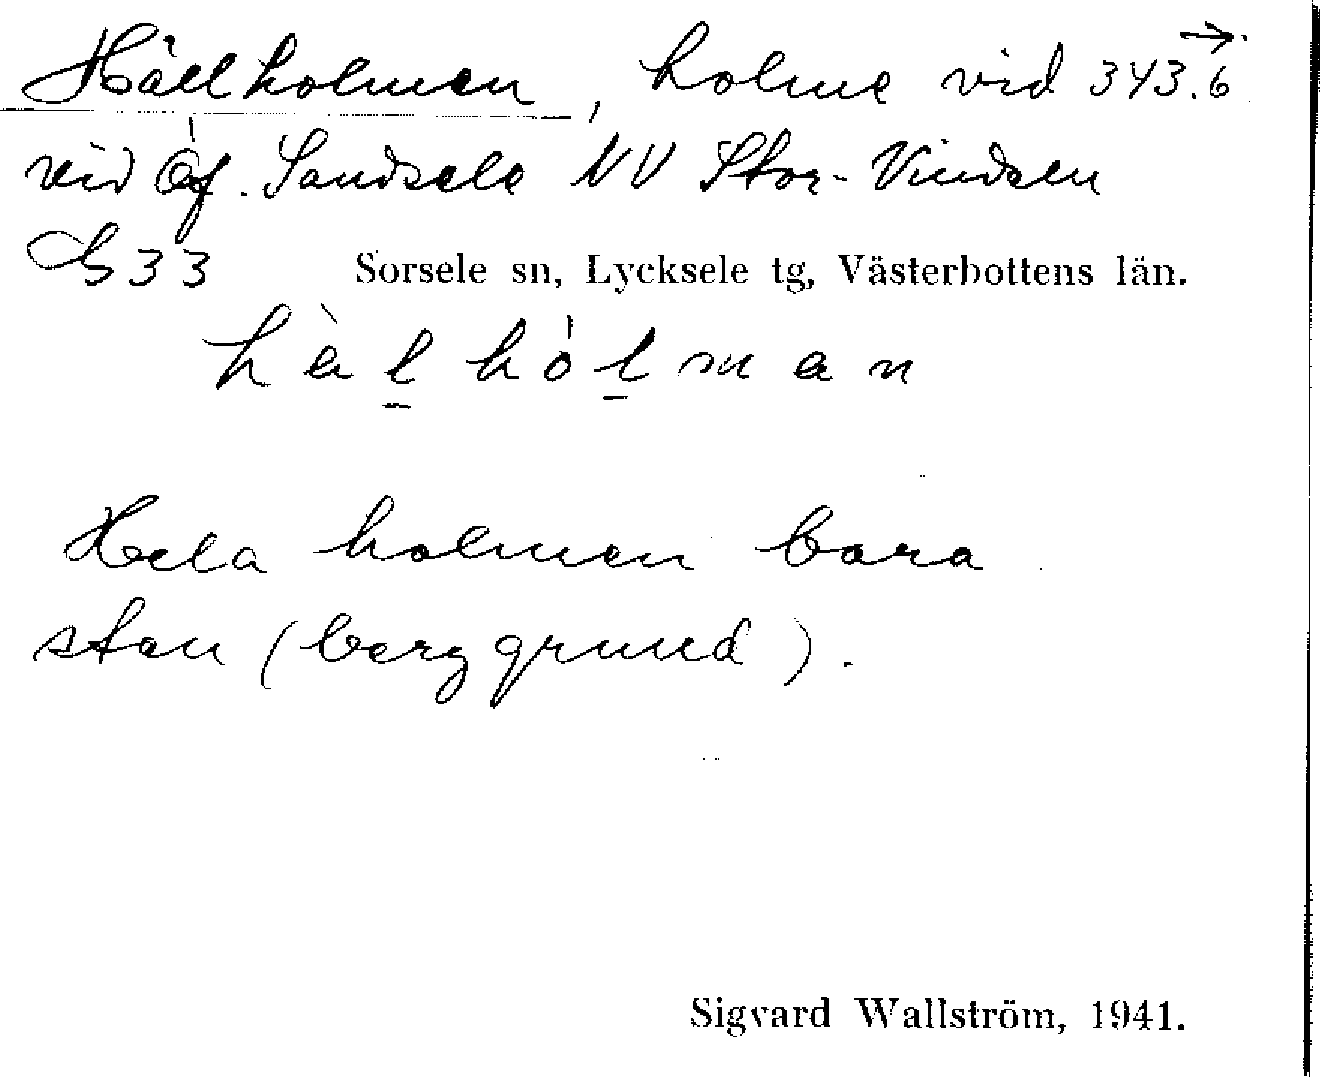 Hällholmen, holme vid 343.6 →
vid Öf. Sandsele NV Stor-Vindeln
G 33 Sorsele sn, Lycksele tg, Västerbottens län.
hàl̲ hól̲man
Hela holmen bara
sten (berggrund).
Sigvard Wallström, 1941.